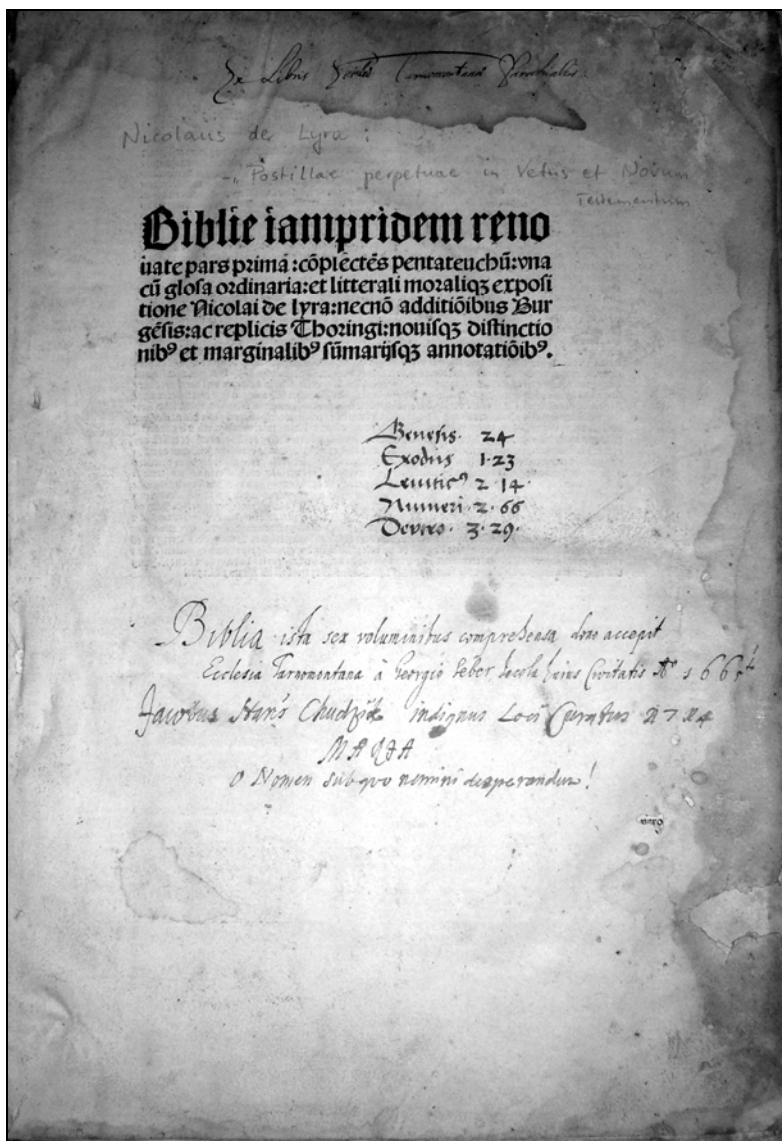 Ex Libris Ecclesiæ Tarnomontanæ Parochialis.
Nicolaus de Lyra :
-„ Postillae perpetuae in Vetus et Novum
Testamentum
Biblie iampridem reno
uate pars prima :cōplectēs pentateuchū:vna
cū glosa ordinaria:et litterali moraliqꝫ exposi
tione Nicolai de lyra:necnō additiōibus Bur
gēsis:ac replicis Thoringi:nouisqꝫ distinctio
nibꝰ et marginalibꝰ sūmarijsqꝫ annotatiōibꝰ.
Genesis. 24
Exodus 1·23
Leuiticꝰ 2 14·
Numeri·2·66
Deutro· 3·29·
Biblia ista sex voluminibus comprehensa dono accepit
Ecclesia Tarnomontana à Georgio Weber Incola huius Civitatis Aº 166
Jacobus Chudzik indignus Loci Curatus
MARIA
O Nomen sub quo nemini desperandum!